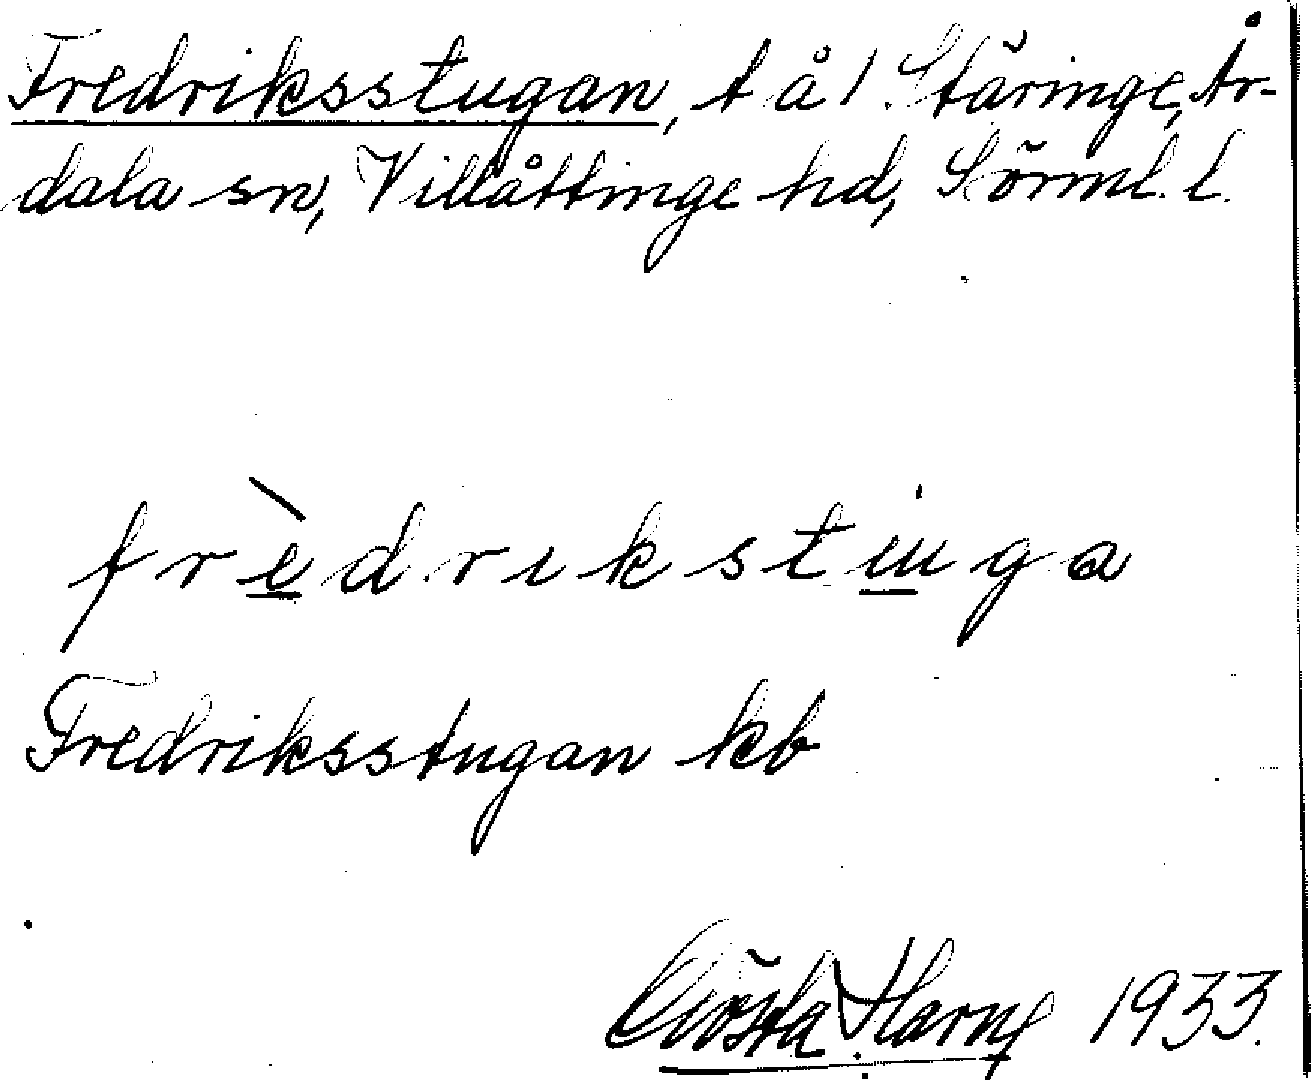 Fredriksstugan, t å l Stäringe, År-
dala sn, Villåttinge hd, Sörml. l.
frèdrikstuga
Fredriksstugan kb
Gösta 1933.